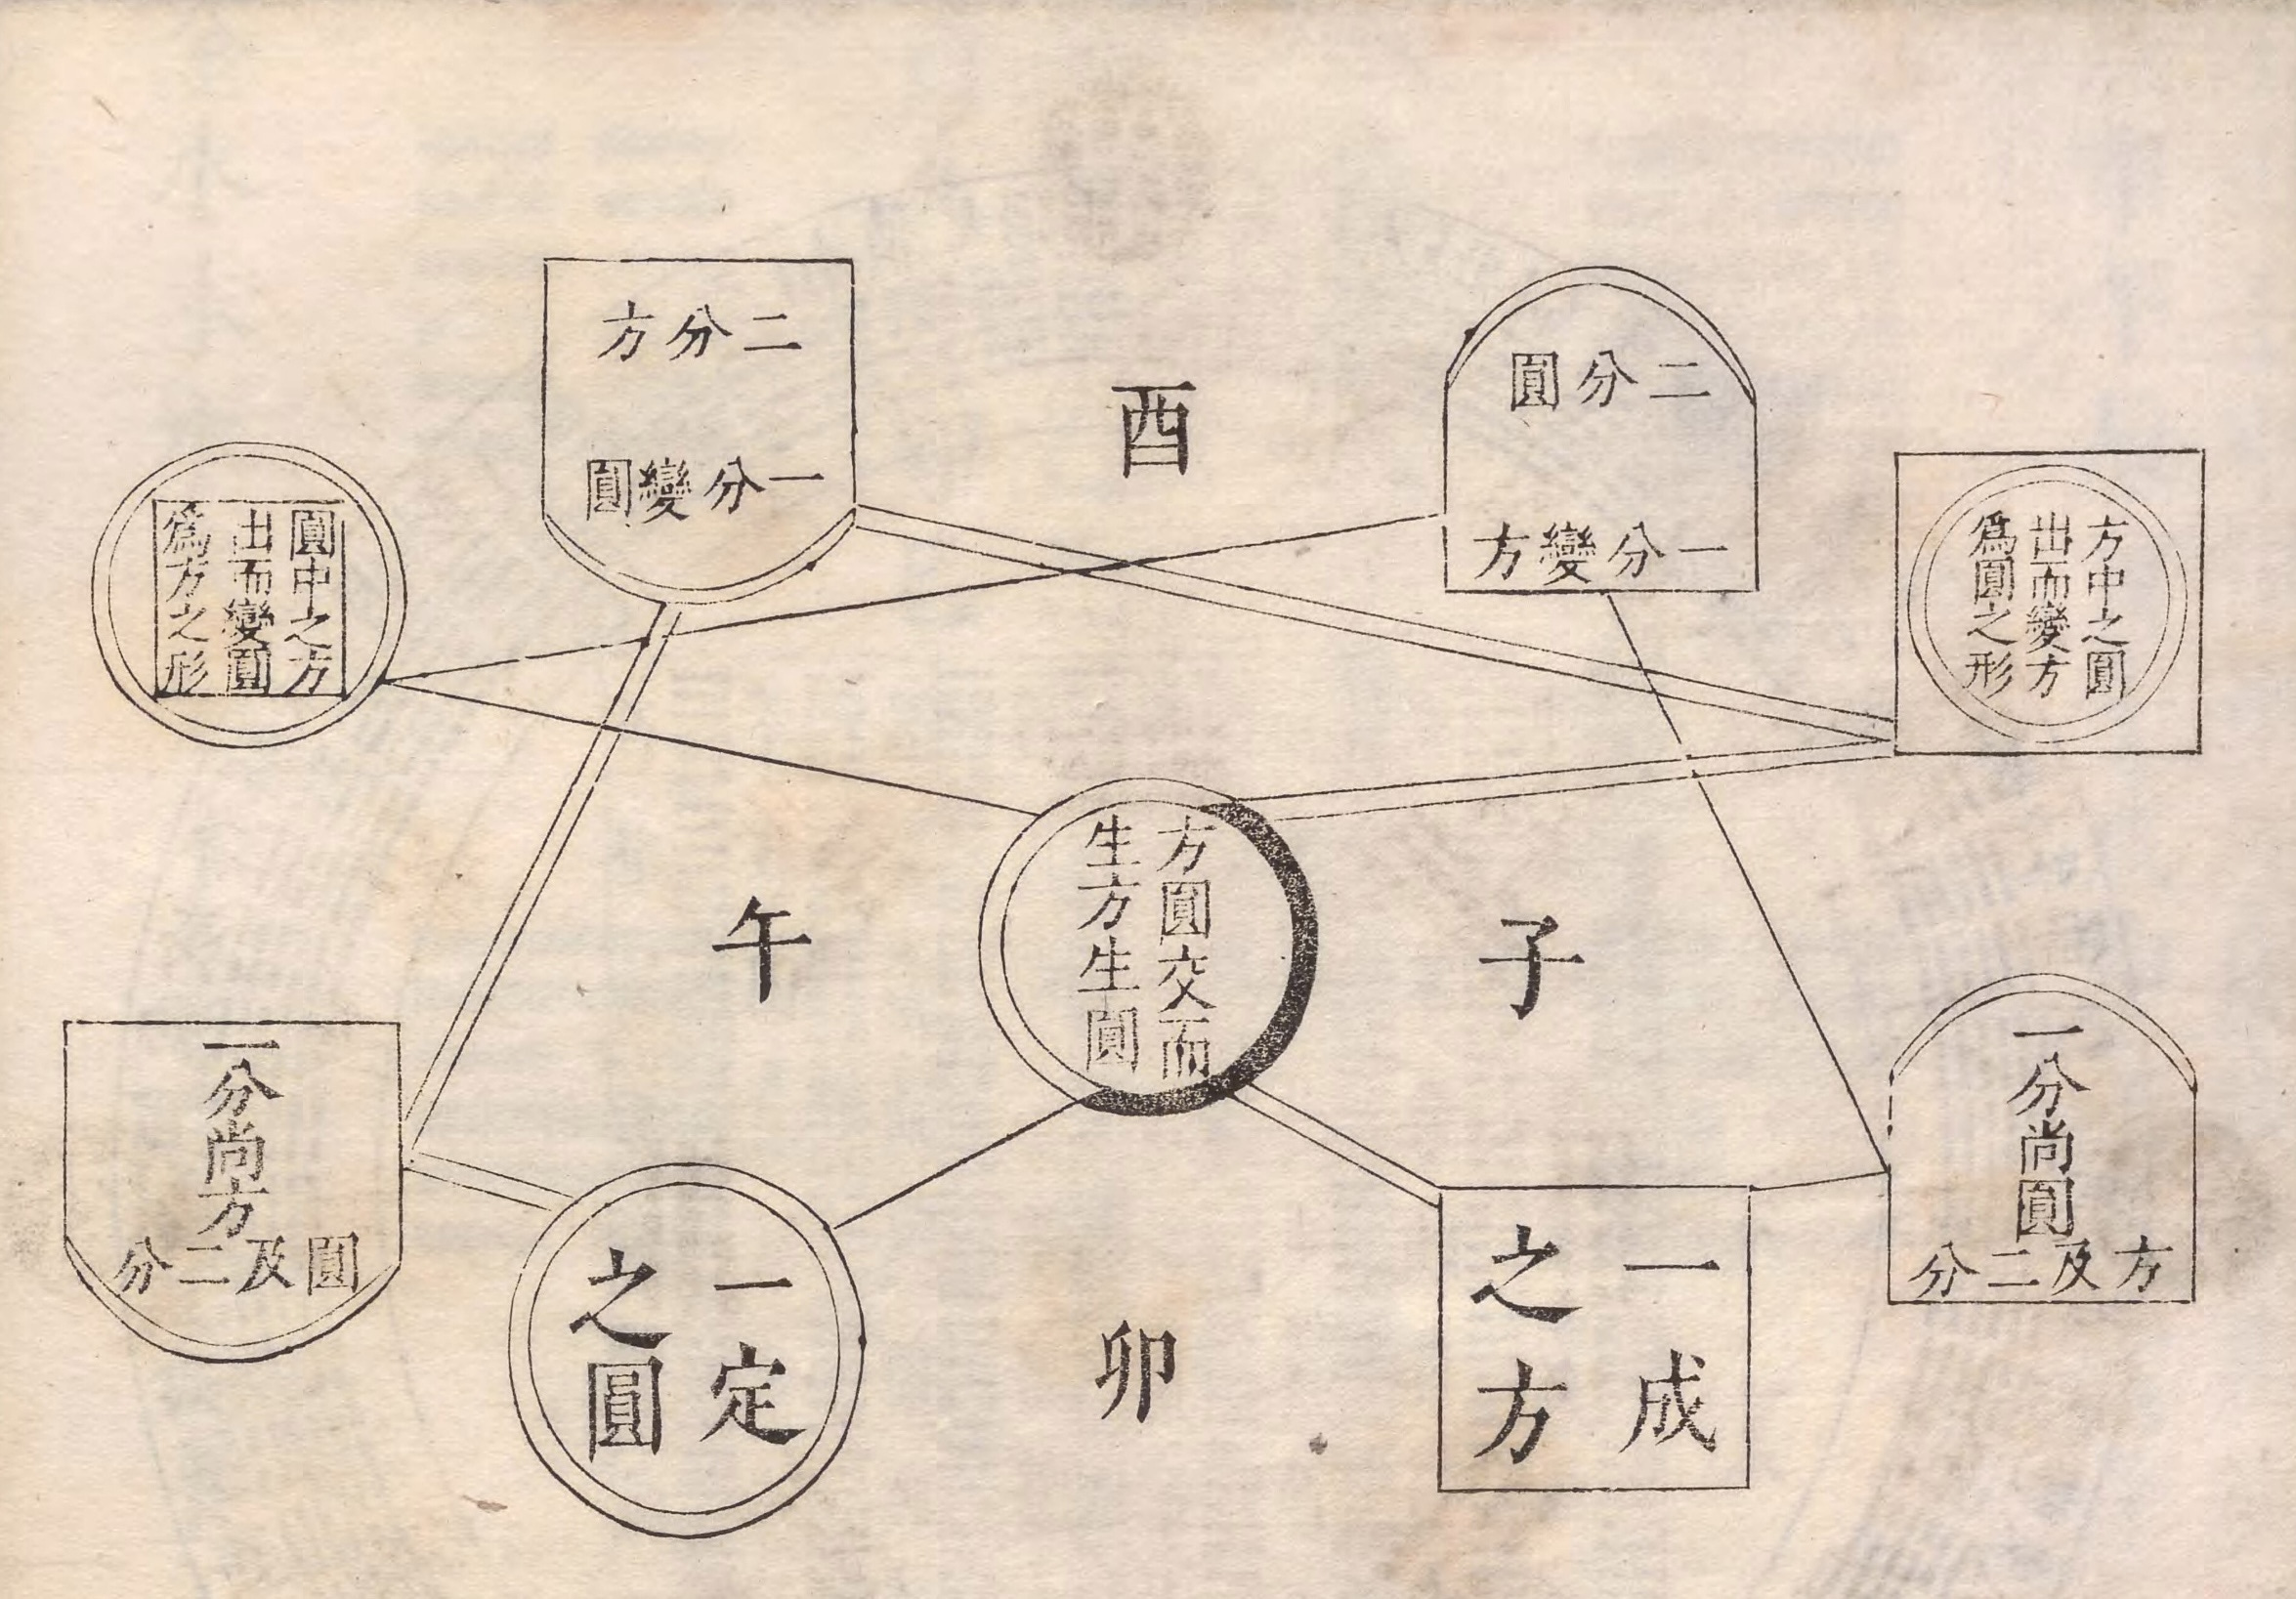 二分圓
一分變方
方中之圓
出而變方
爲圓之形
酉
二分方
一分變圓
圓中之方
出而變圓
爲方之形
子
方圓交而
生方生圓
午
一分尚圓
方及二分
一成
之方
卯
一定
之圓
一分尚方
圓及二分